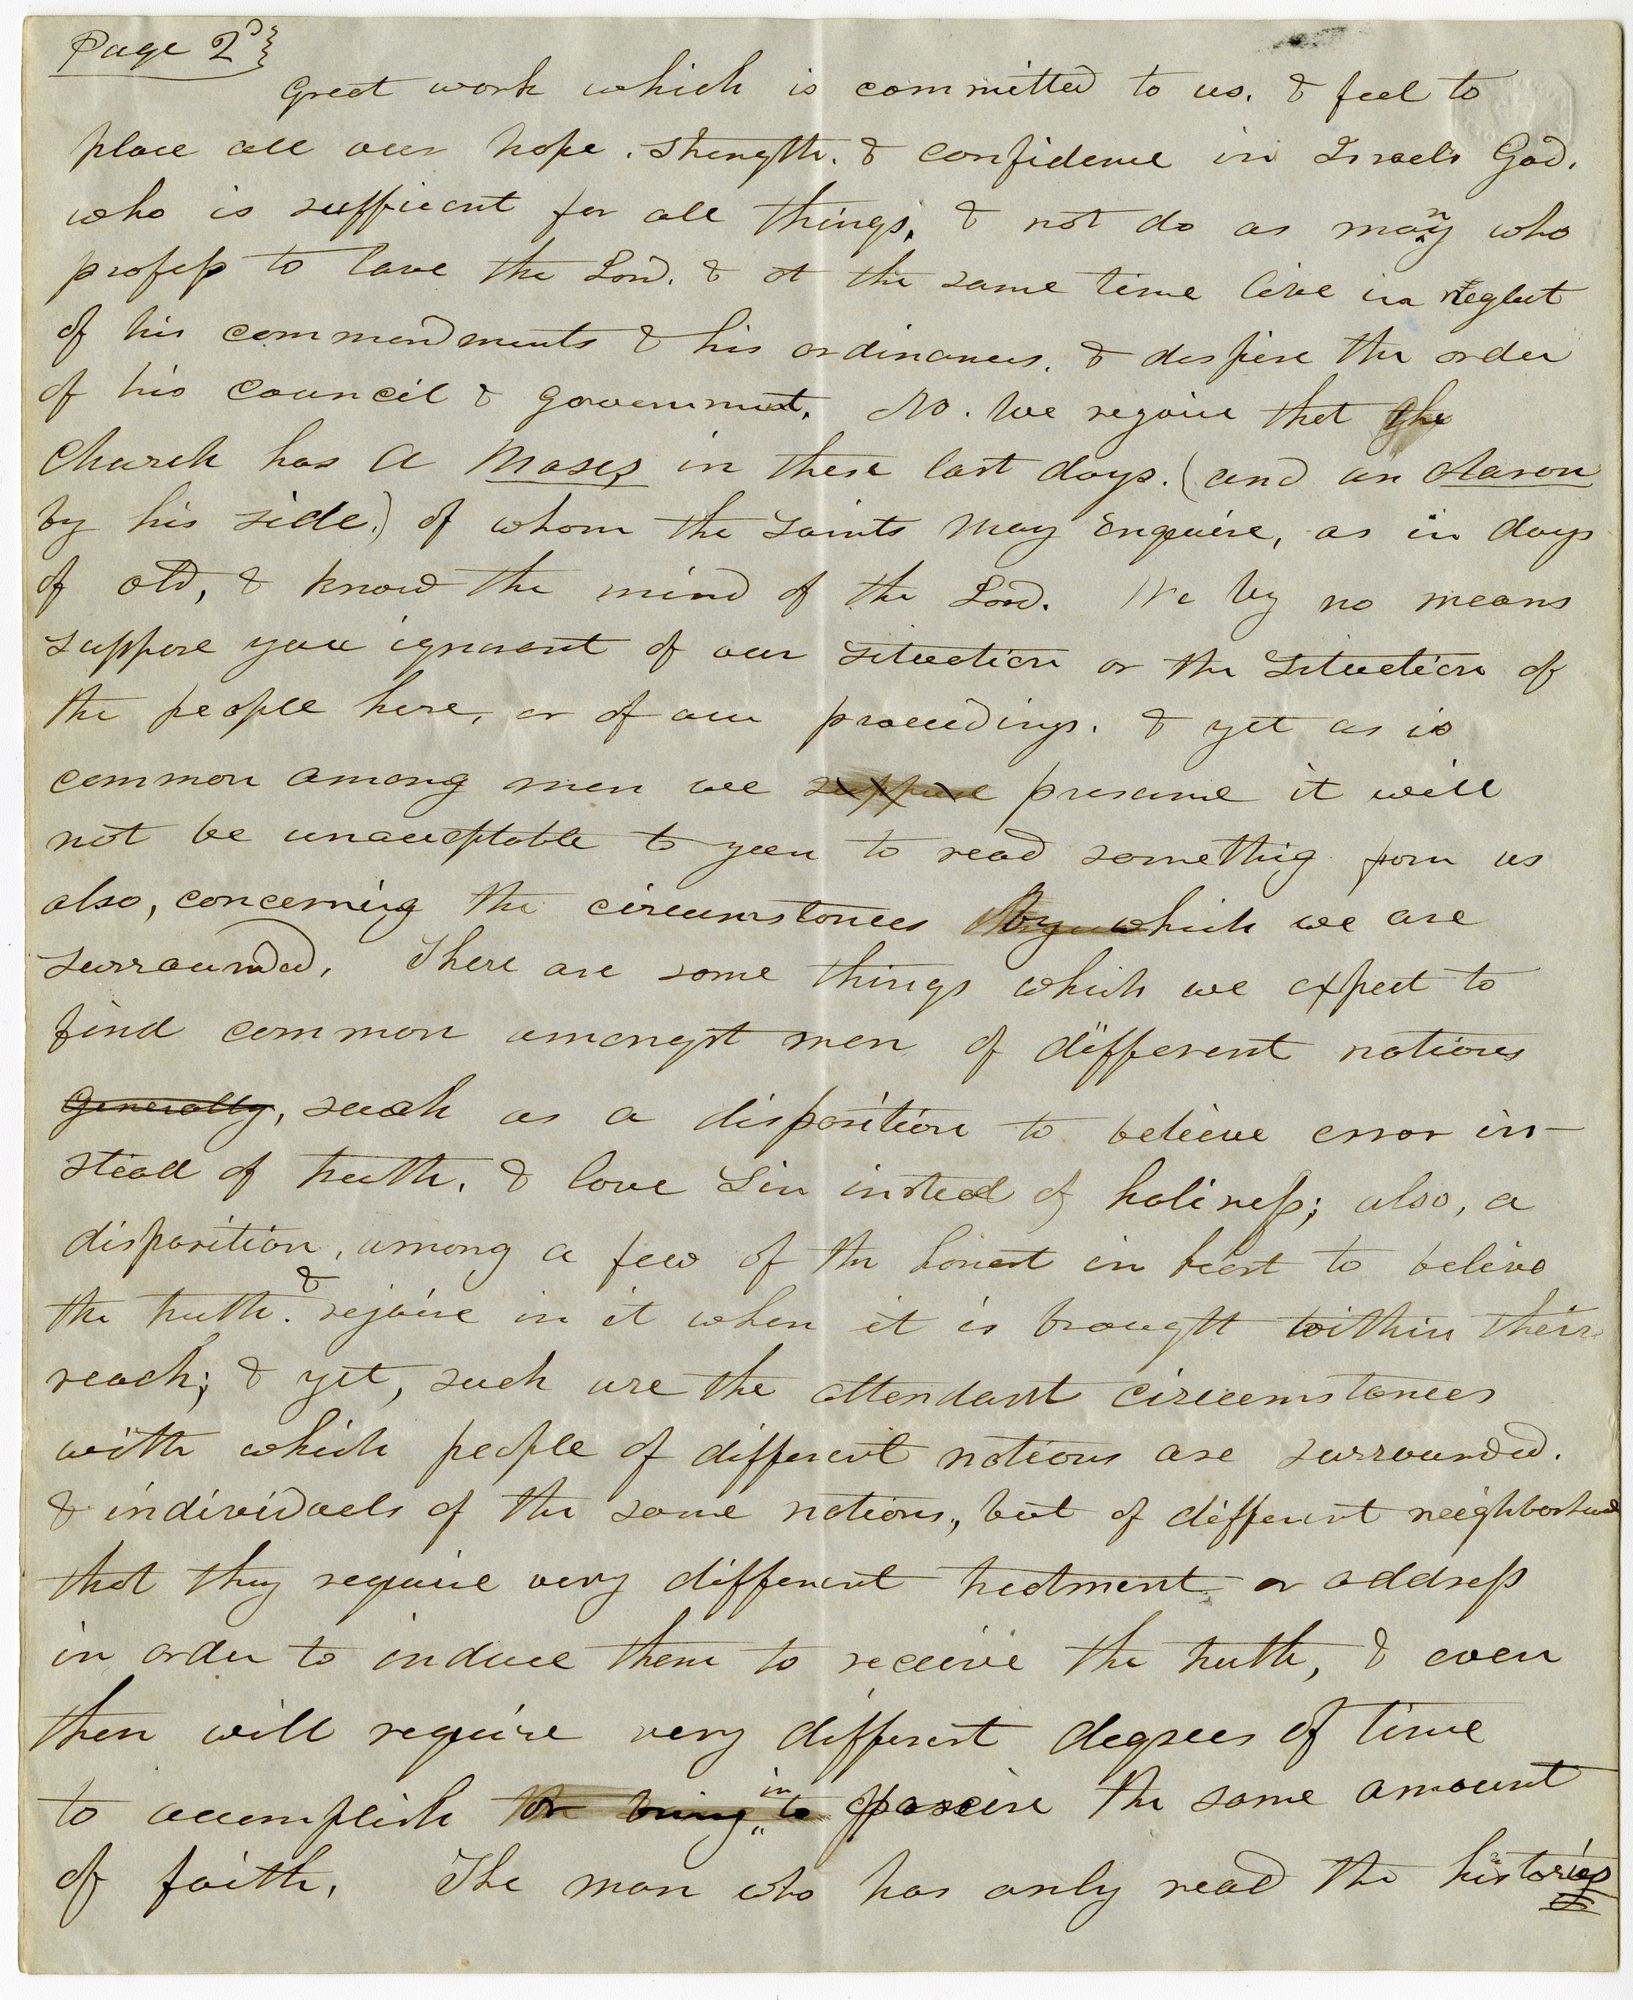 Page 2d}
Great work which is committed to us. & feel to
place all our hope. Strength. & confidence in Israels God.
who is sufficent for all things, & not do as many who
profess to love the Lord. & at the same time live in neglect
of his commendments & his ordinances. & despise the order
of his council & government. No. We rejoice that the
Church has A Moses, in these last days. (and an Aaron
by his side.) of whom the Saints may enquire, as in days
of old, & know the mind of the Lord. We by no means
suppose you ignorant of our situation or the situation of
the people here, or of our proceedings. & yet as is
common among men we suppose presume it will
not be unacceptable to you to read something from us
also, concerning the circumstances by which we are
surrounded. There are some things which we expect to
find common amongst men of different nations
Generally, such as a disposition to believe error in-
stead of truth. & love Sin instead of holiness; also, a
disposition, among a few of the honest in heart to belive
the truth. & rejoice in it when it is brought within their
reach; & yet, such are the attendant circumstances
with which people of different nations are surrounded.
& individuals of the same nations, but of different neighborhood
that they require very different treatment or address
in order to induce them to receive the truth, & even
then will require very different degrees of time
to accomplish or bring in to the same amount
of faith. The man who has only read the histories